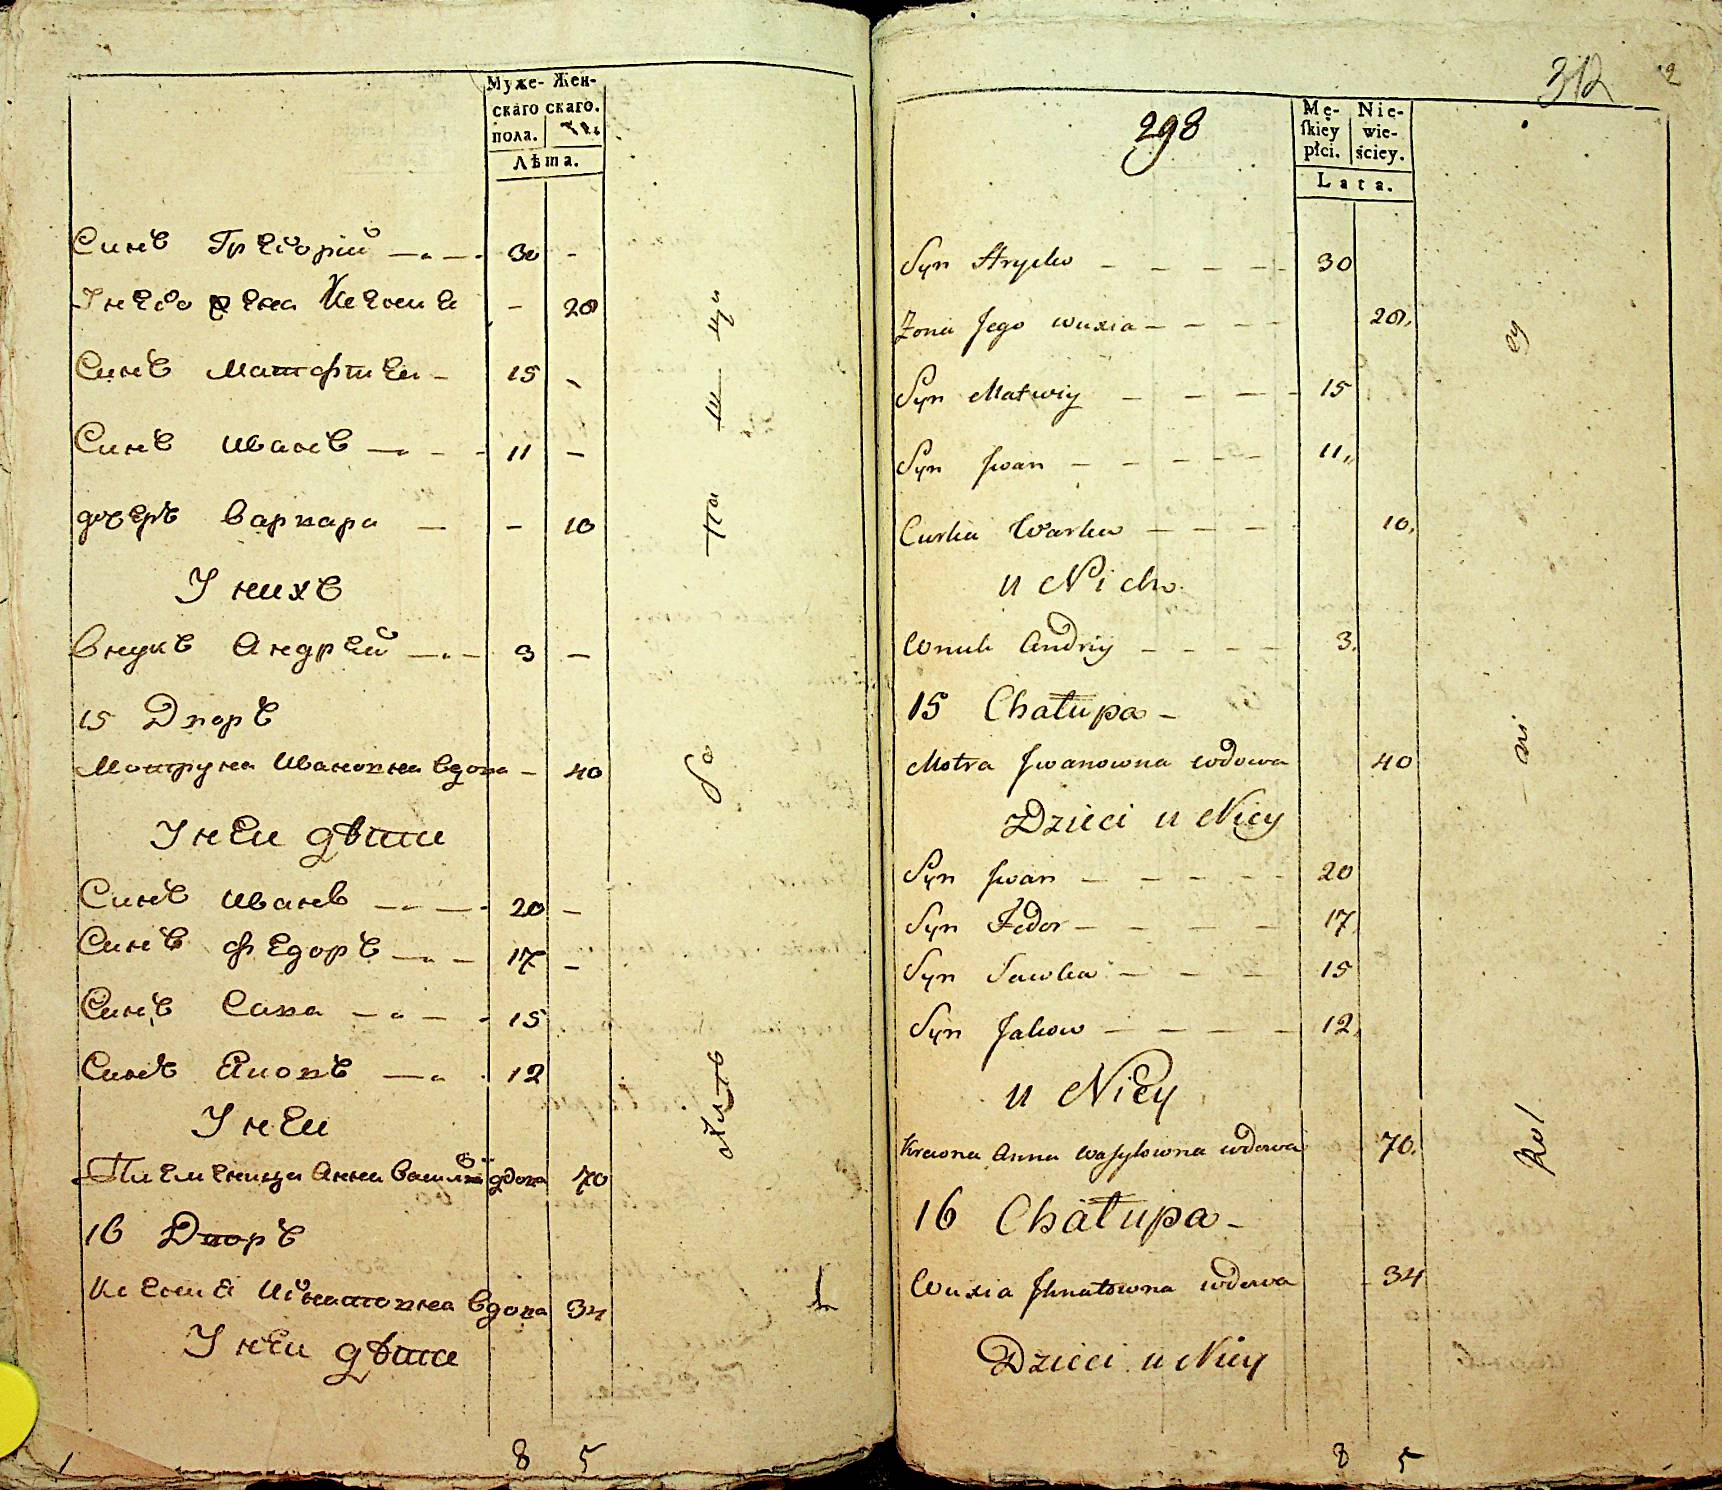 Муже- Жен-
скаго скаго.
пола.
Лѣта.
Синъ Григорій 30 -
У него жена Ксенія - 20
Синъ Матфтей - 15 -
Синъ Иванъ 11 -
дочеръ Варвара - 10
У нихъ
Внукъ Андрей 3 -
15 Дворъ
Матруна Ивановна вдова - 40
У неи дѣти
Синъ Иванъ 20 -
Синъ Федоръ 17 -
Синъ Сава 15
Синъ Яковъ 12
У неи
Племеница Анна Васил вдова 70
16 Дворъ
Ксения Игнатовна вдова 34
У неи дѣти
8 5
312
298
Mę- Nie-
ſkiey wie-
płci. ściey.
Lata.
Syn Hryćko 30
Zona Jego wuxia 20.
Syn Matwiy 15
Syn Jwan 11.
Curka Warka 10.
u Nich
Wnuk Andriy 3.
15 Chałupa
Motra Jwanowna wdowa 40
Dzieci u Niey
Syn Jwan 20
Syn Fedor 17.
Syn Sawka 15
Syn Jakow 12.
u Niey
Krewna Anna Waſylowna wdowa 70.
16 Chałupa
Wuxia Jhnatowna wdowa 34
Dzieci u Niey
8 5